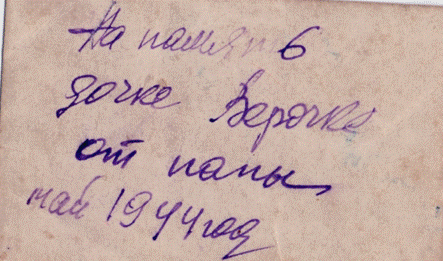 На память
дочке Верочке
от папы
май 1944 год